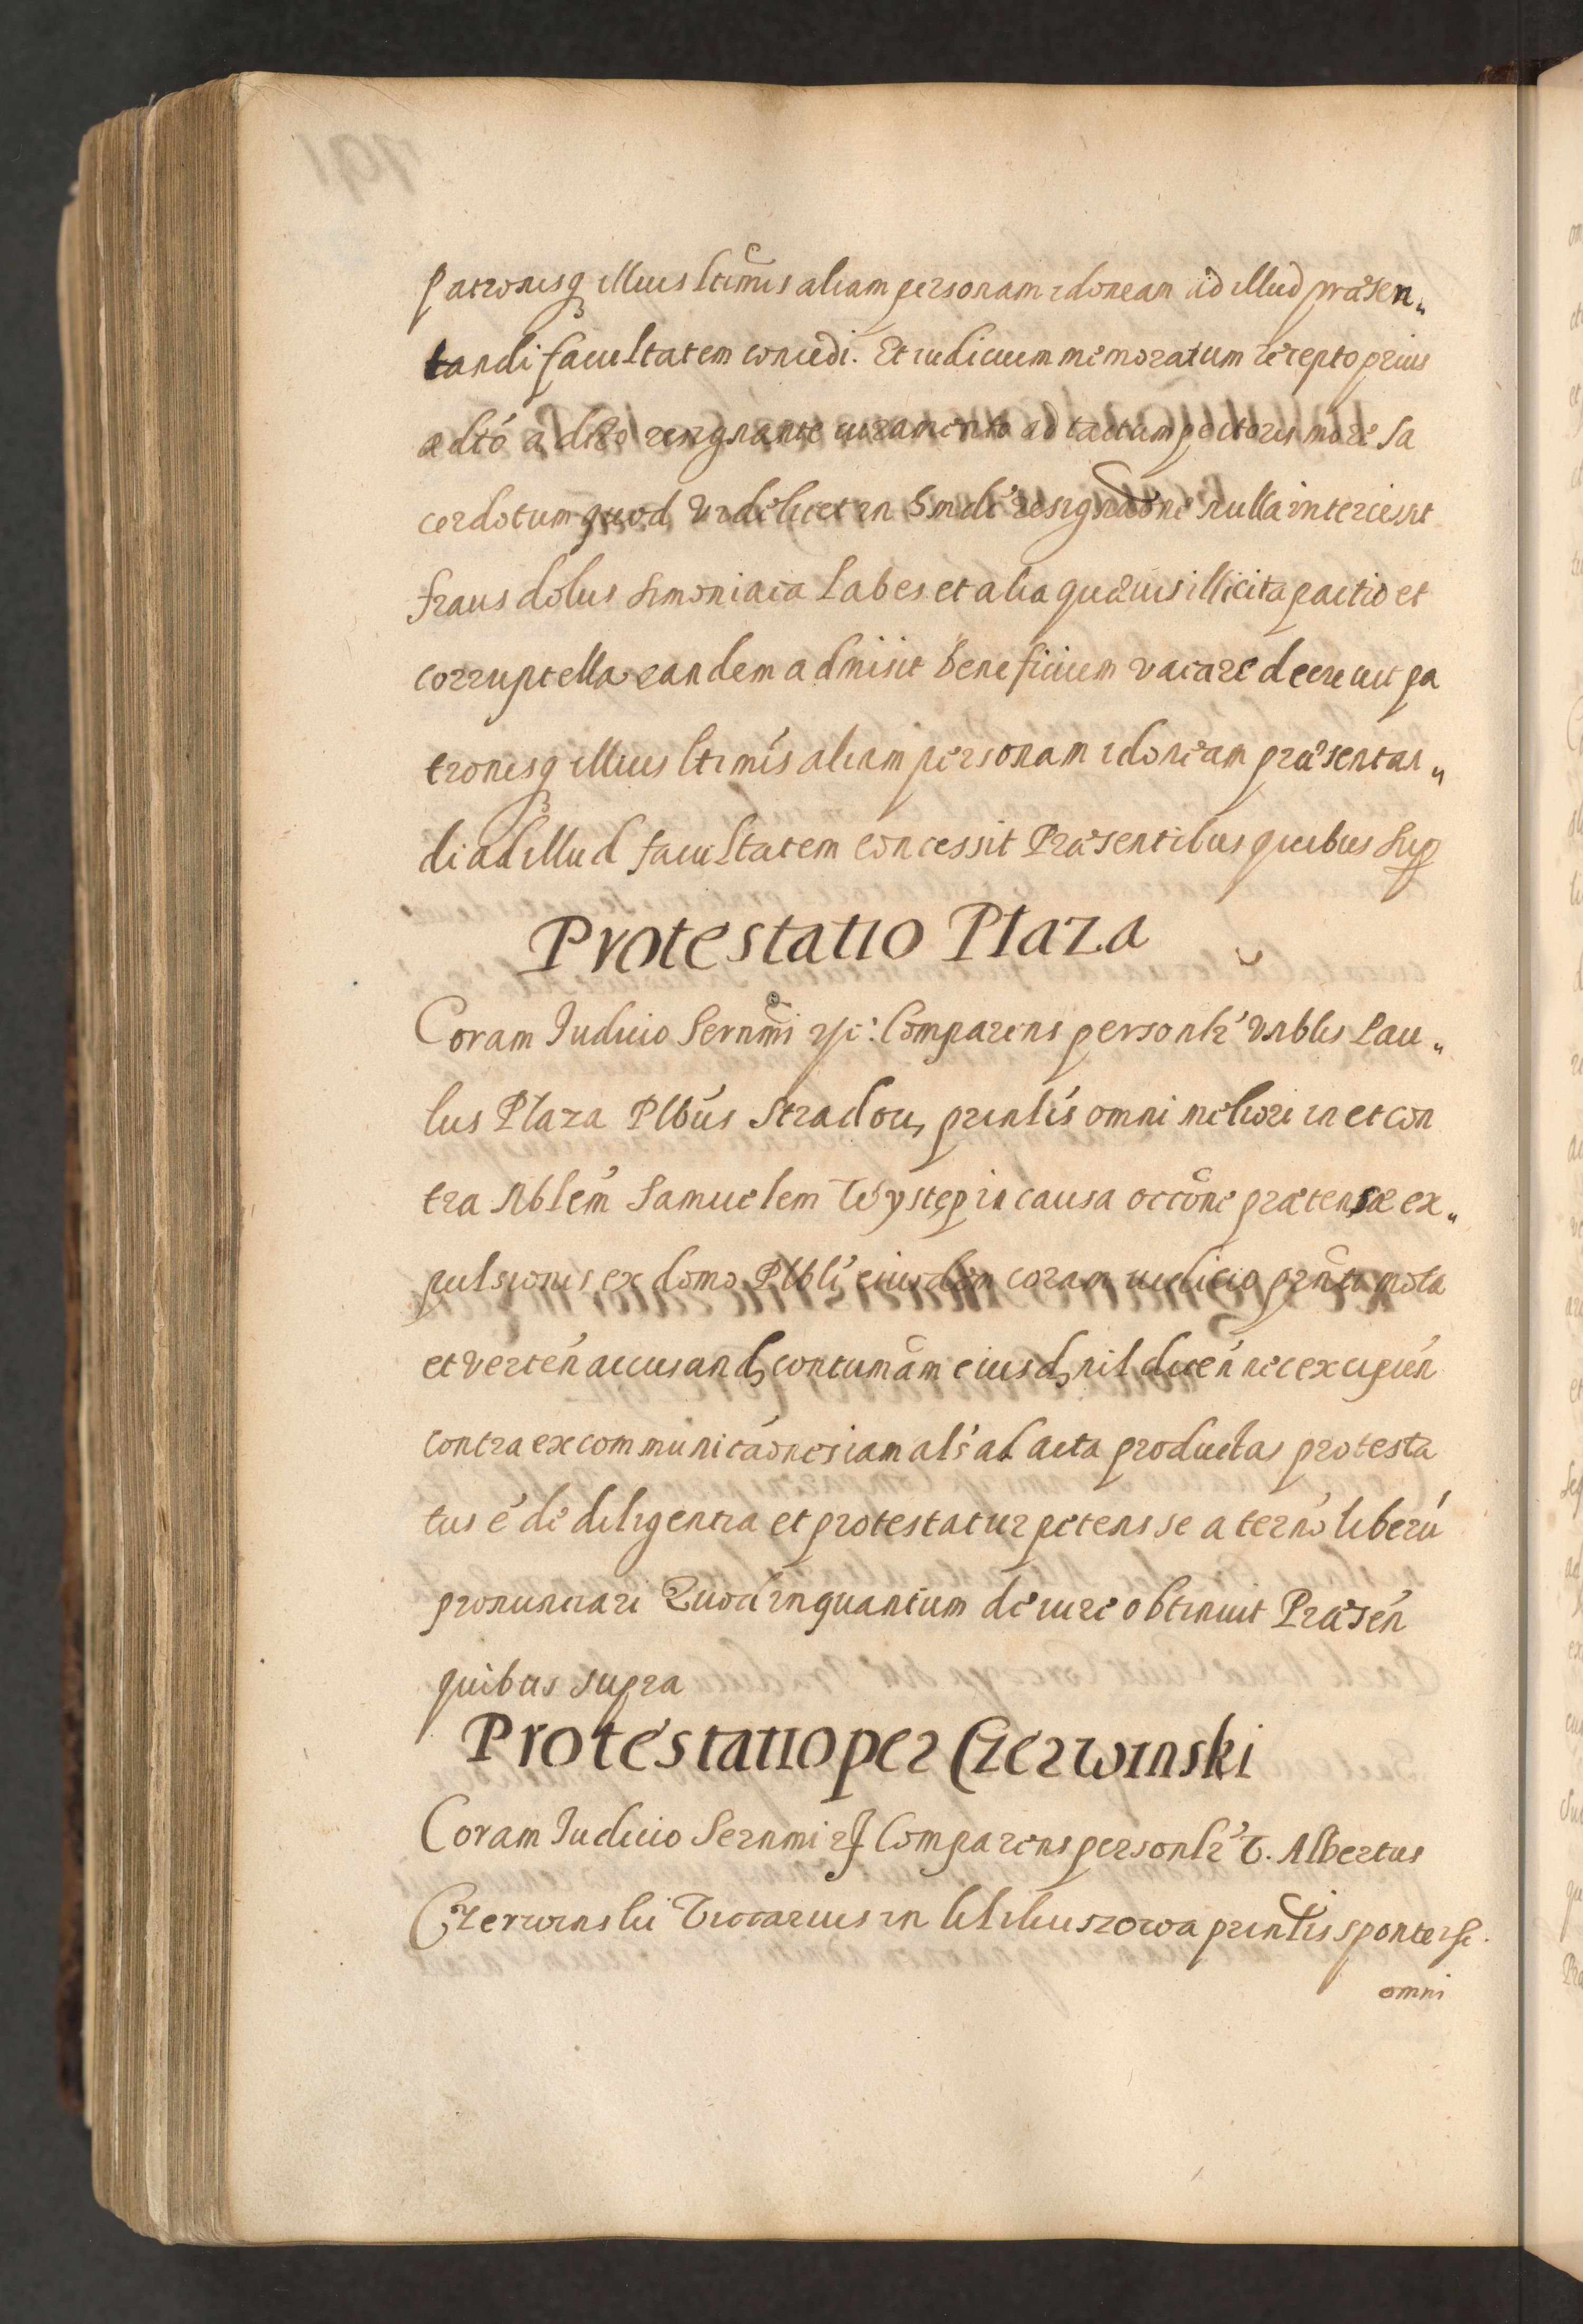 patronisq illius ltimis aliam personam idoneam ad illud præsen„
tandi facultatem concedi. Et iudicium memoratum recepto prius
a dto a dicto resignante iuramento ad tactum pectoris more Sa
cerdotum quod videlicet in hmdi resignaone nulla intercessit
fraus dolus simoniaca labes et alia quævis illicita pactio et
corruptella eandem admisit beneficium vacare decrevit pa
tronisq illius ltimis aliam personam idoneam præsentan„
di ad illud facultatem concessit Præsentibus quibus sup
Protestatio Plaza
Coram Iudicio Sernmi rc: Comparens personlr Nblis Pau„
lus Plaza Plbus Stradou, prinlis omni meliori in et con
tra Nblem Samuelem Występ in causa occone prætensæ ex„
pulsionis ex domo Plbli eiusdem coram iudicio prnti mota
et verten accusand contumam eiusd nil dicen nec excipien
contra excommunicaones iam als ad acta productas protesta
tus e de diligentia et protestatur petens se a termo liberu
pronunciari Quod inquantum de iure obtinuit Præsen
quibus supra
Protestatio per Czerwinski
Coram Iudicio Sernmi rc Comparens personlr V. Albertus
Czerwinski Viccarius in prinlis sponte rc.
omni